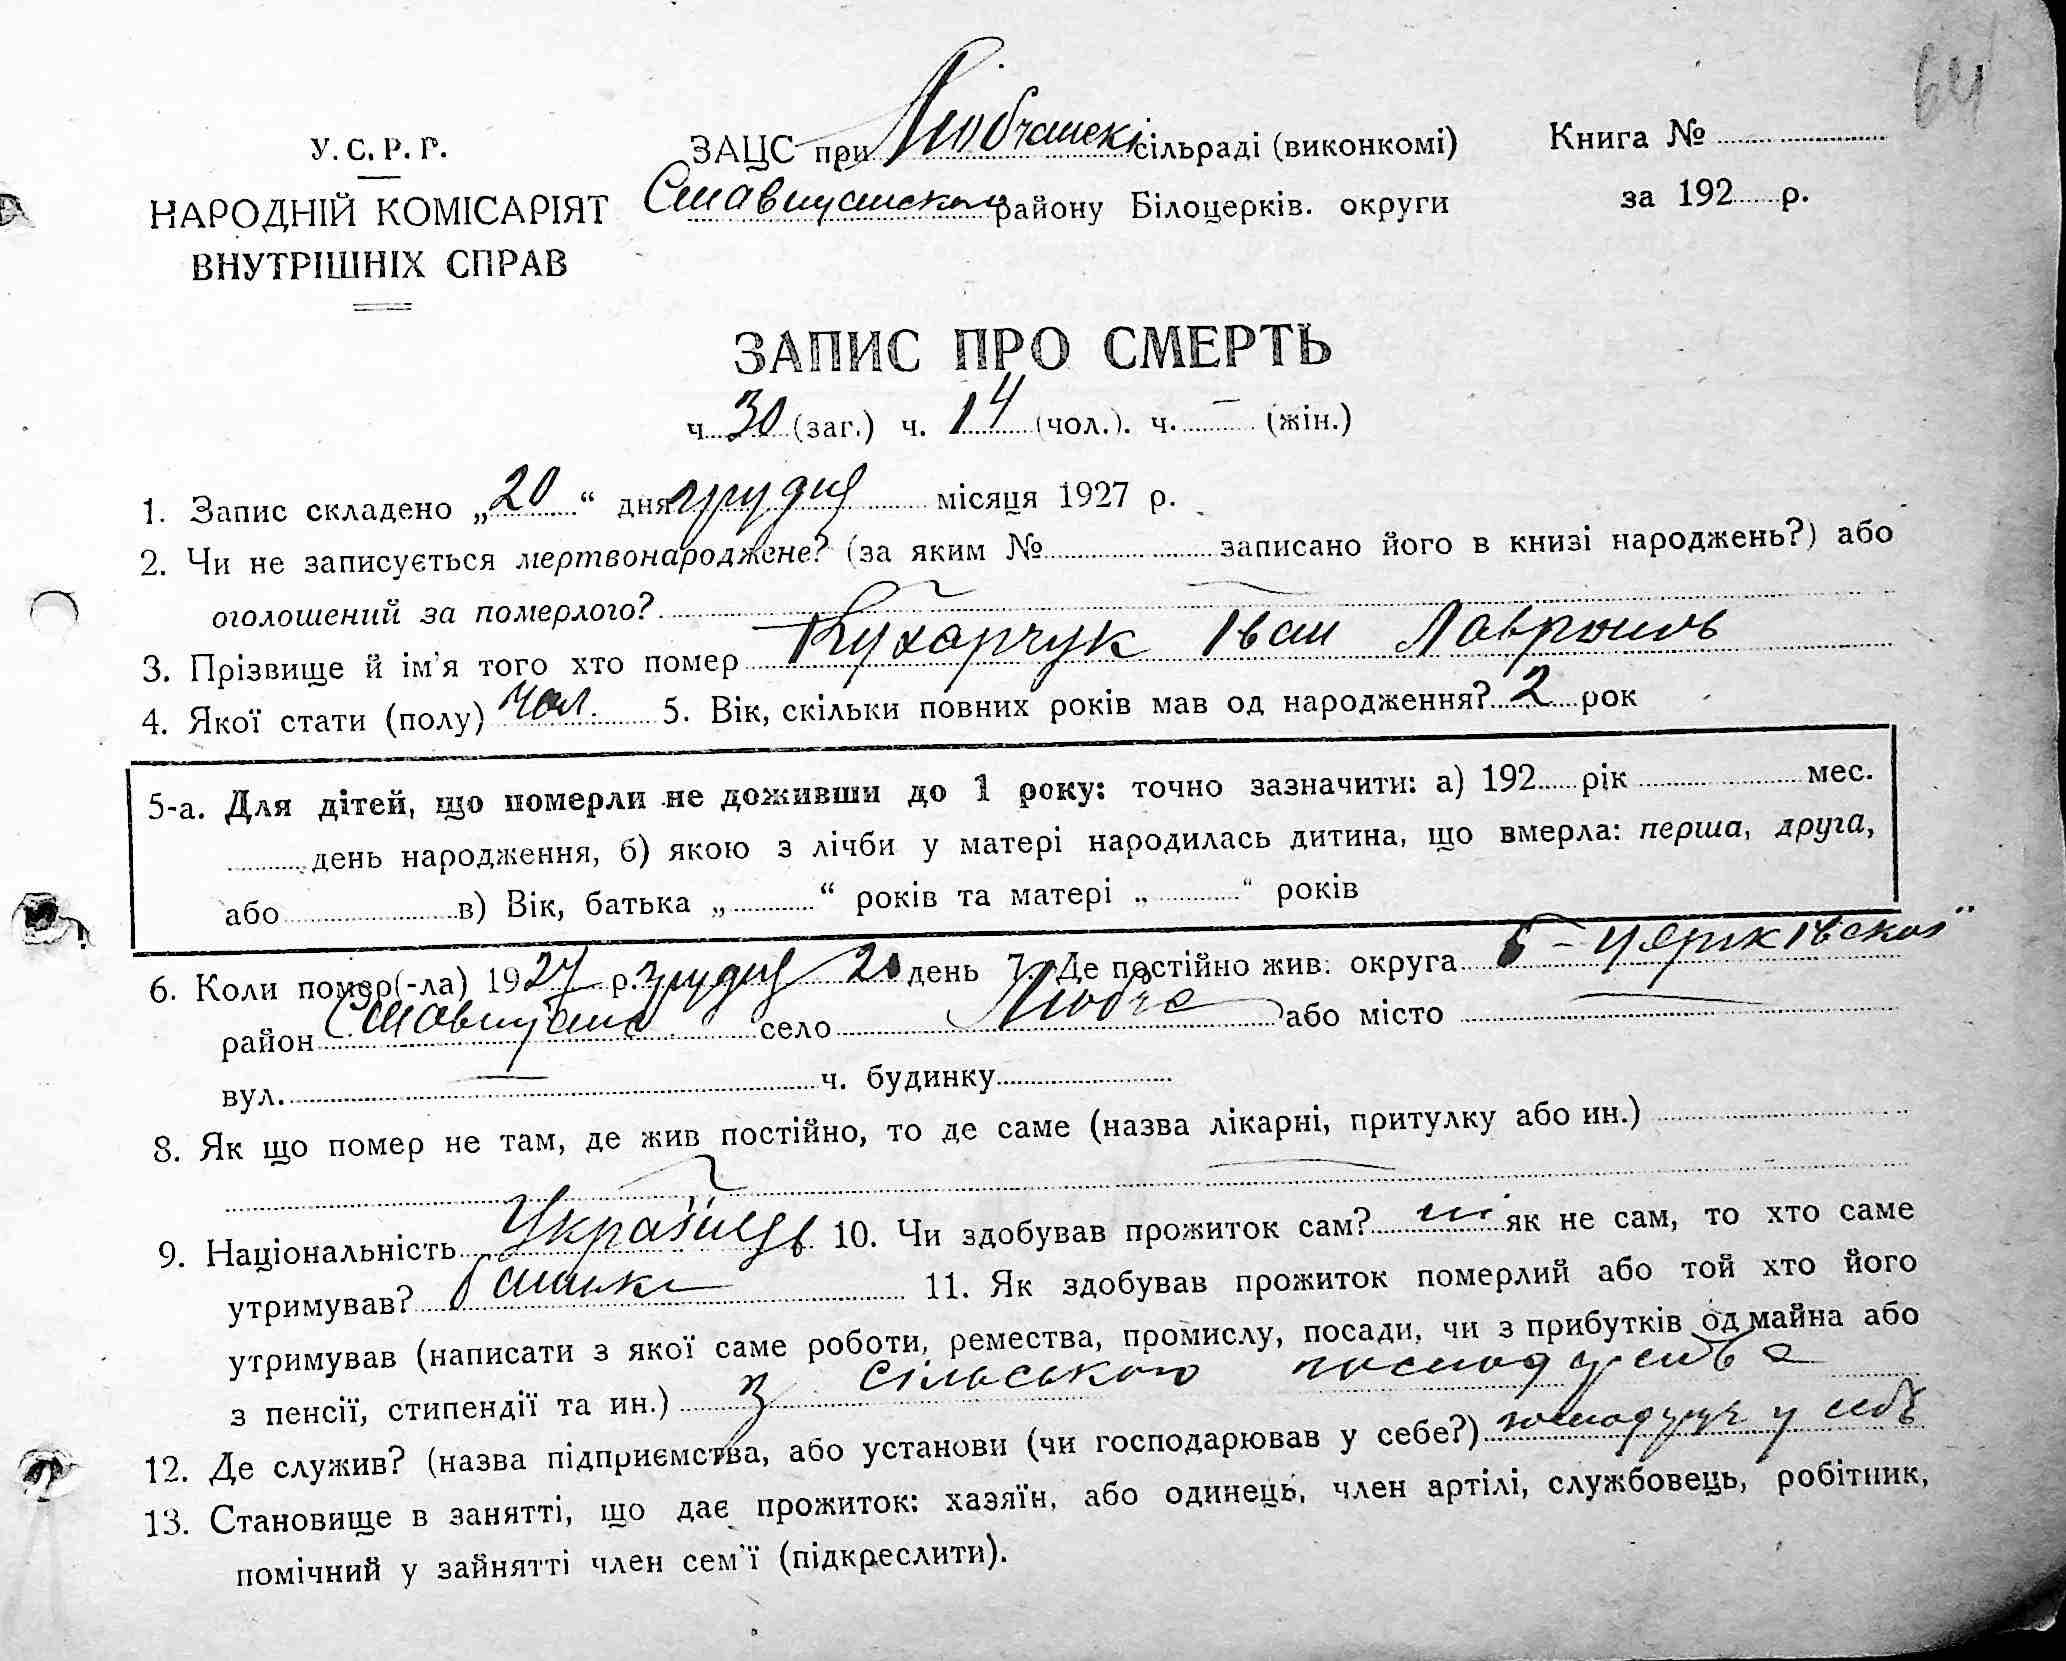 64
У. С. Р. Р.
НАРОДНІЙ КОМІСАРІЯТ
ВНУТРІШНІХ СПРАВ
ЗАЦС при Любчанскі сільраді (виконкомі)
Ставищанского району Білоцерків. округи
Книга №
за 192 р.
ЗАПИС ПРО СМЕРТЬ
ч. 30 (заг.) ч. 14 (чол.). ч. – (жін.)
1. Запис складено „20“ дня грудня місяця 1927 р.
2. Чи не записується мертвонароджене? (за яким № записано його в книзі народжень?) або
оголошений за померлого?
3. Прізвище й ім'я того хто помер Кухарчук Іван
4. Якої стати (полу) чол. 5. Вік, скільки повних років мав од народження? 2 рок
5-а. Для дітей, що померли не доживши до 1 року: точно зазначити: а) 192 рік мес.
день народження, б) якою з лічби у матері народилась дитина, що вмерла: перша, друга,
або в) Вік, батька „ “ років та матері „ “ років
6. Коли помер(-ла) 1927 р. грудня 20 день 7. Де постійно жив: округа Б-Церківської
район Ставищан село Любча або місто
вул. ч. будинку
8. Як що помер не там, де жив постійно, то де саме (назва лікарні, притулку або ин.)
9. Національність Українець 10. Чи здобував прожиток сам? ні як не сам, то хто саме
утримував? батьки 11. Як здобував прожиток померлий або той хто його
утримував (написати з якої саме роботи, ремества, промислу, посади, чи з прибутків од майна або
з пенсії, стипендії та ин.) З сільського господарства
12. Де служив? (назва підприємства, або установи (чи господарював у себе?) у себе
13. Становище в занятті, що дає прожиток: хазяїн, або одинець, член артілі, службовець, робітник,
помічний у зайнятті член сем'ї (підкреслити).